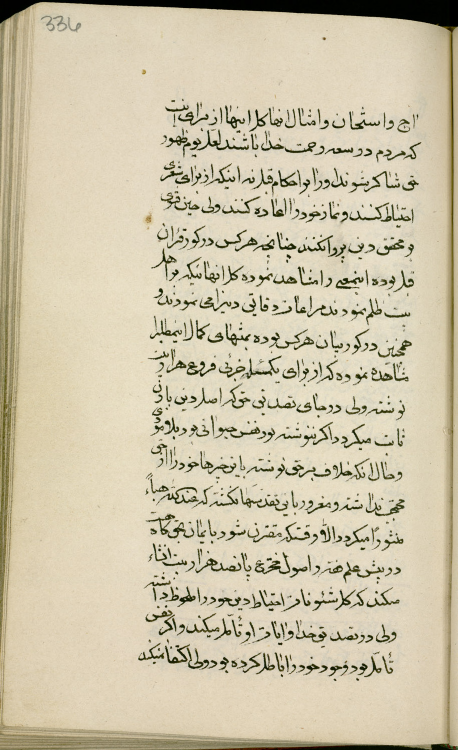 336
و استحان و امثال انها کل اینها از برای انست
که مردم در سعه رحمت خدا باشند لعل یوم ظهور
حق شاکر شوند او را بر احکام قبل نه اینکه از برای شعری
احتیاط کنند و نماز خود را اعاده کنند ولی حین
بر محقق دین پروا نکنند چنانچه هر کس در کور قران
قبل بوده این را مشاهده نموده کل انهائیکه بر اهل
بیت ظلم نمودند مراعات دقائق دین را می نمودند و
همچنین در کور بیان هر کس بوده بمنتهای کمال این مطلب را
مشاهده نموده که از برای یکمسئله جزئی فروع هزار بیت
نوشته ولی در جای تصدیق حق که اصل دین بان
ثابت میگردد اگر ننوشته بود نفس حیوانی بود بلا
و حال انکه خلاف بر حق نوشته باین چیزها خود را از حق
محتجب نداشته و مغرور باین نکشته که عند الله هباء
منثورا میگردد الا وقتیکه مقترن شود بایمان بحق گاه
در پیش علم اصول مخترع پانصد هزار بیت انشاء
میکند که کل شئونات احتیاط دین خود را ملحوظ داشته
ولی در تصدیق خدا و ایات او تامل میکند و اگر نفس
تامل بود وجود خود را باطل کرده بود ولی اکتفا نمیکند